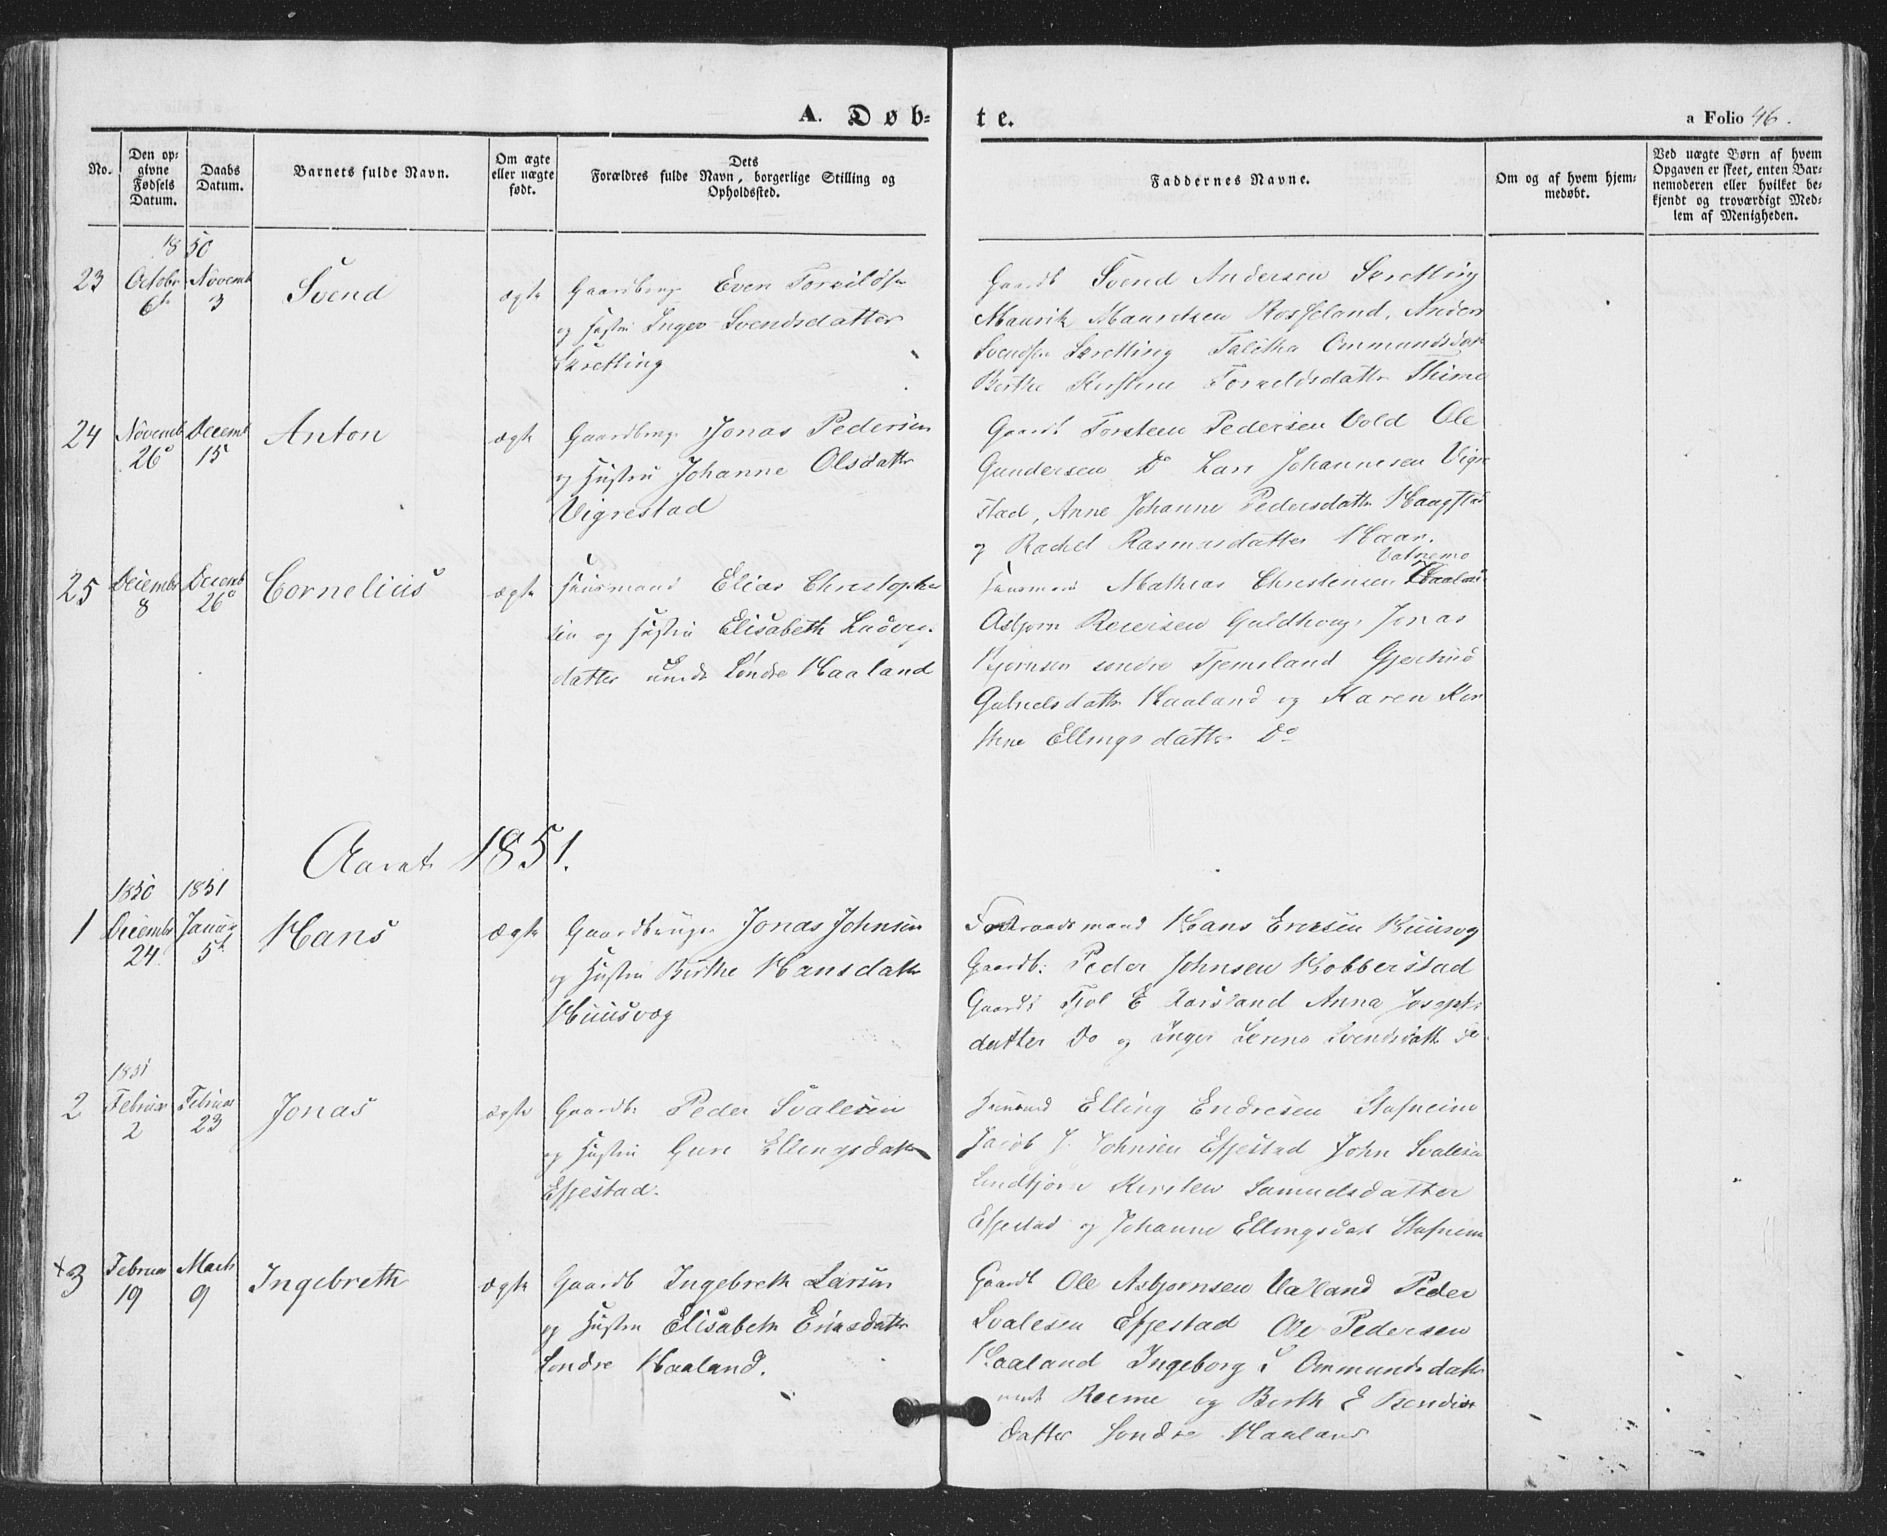 A. Døb=
te.
a Folio 46.
No.
Den op=
givne
Fødsels
Datum.
Daabs
Datum.
Barnets fulde Navn.
Om ægte
eller uægte
født.
Dets
Forældres fulde Navn, borgerlige Stilling og
Opholdssted.
Faddernes Navne.
Om og af hvem hjem=
medøbt.
Ved uægte Børn af hvem
Opgaven er skeet, enten Bar=
nemoderen eller hvilket be=
kjendt og troværdigt Med=
lem af Menigheden.
1850
23 Octobr 6te Novemb 3 Svend ægte
Gaardbrug Even Torkildsen
og Hustru Inger Svendsdatter
Skretting
Gaardb Svend Andersen Skretting
Maurik Mauritzen Rosseland, Anders
Svendsen Skretting Talitha Ommundsdatr
Berthe Kirstine Torkeldsdattr Thime
24 Novemb 26de Decemb 15 Anton ægte
Gaardbrug Jonas Pedersen
og Hustru Johanne Olsdattr
Vigrestad
Gaardb Torsteen Pedersen Vold Ole
Gundersen Do Lars Johannesen Vigre
stad, Anne Johanne Pedersdattr
og Rachel Rasmusdatter Haar.
25 Decembr 8 Decemb 26de Cornelius ægte
Huusmand Elias Christopher
sen og Hustru Elisabeth Ladvigs
datter Søndre Haaland
Vatnemo
Huusmand Mathias Christensen Haaland
Asbjørn Reiersen Guldhoug, Jonas
Bjørnsen søndre Tjemsland Gjertrud
Gabrielsdattr Haaland og Karen Kir
stine Ellingsdatter Do
Aaret 1851.
1850 1851
1 Decembr 24 Januar 5te Hans Ægte
Gaardbruger Jonas Johnsen
og Hustru Berthe Hansdattr
Huusvog
Forraadsmand Hans Ericksen Huusvog
Gaardb: Peder Johnsen Hobberstad
Gaardb Tjol E Aarsland Anna Joseph
datter Do og Inger Serena Svendsdattr Do
1851
2 Februar 2 Februar 23 Jonas ægte
Gaardb: Peder Svalesen
og Hustru Guri Ellingsdattr
Efjestad.
Huusmand Elling Endresen Stafneim
Jacob J. Johnsen Efjestad John Svalesen
Lindtjørn Kirsten Samuelsdatter
Efjestad og Johanne Ellingsdat Stafneim
+3 Februar 19 Marts 9 Ingebreth ægte
Gaardb Ingebreth Larsen
og Hustru Elisabeth Eriksdattr
Søndre Haaland.
Gaardb Ole Asbjørnsen Ualand Peder
Svalesen Efjestad Ole Pedersen
Haaland Ingeborg S Ommundsdattr
Reeme og Berth E
datter Søndre Haaland